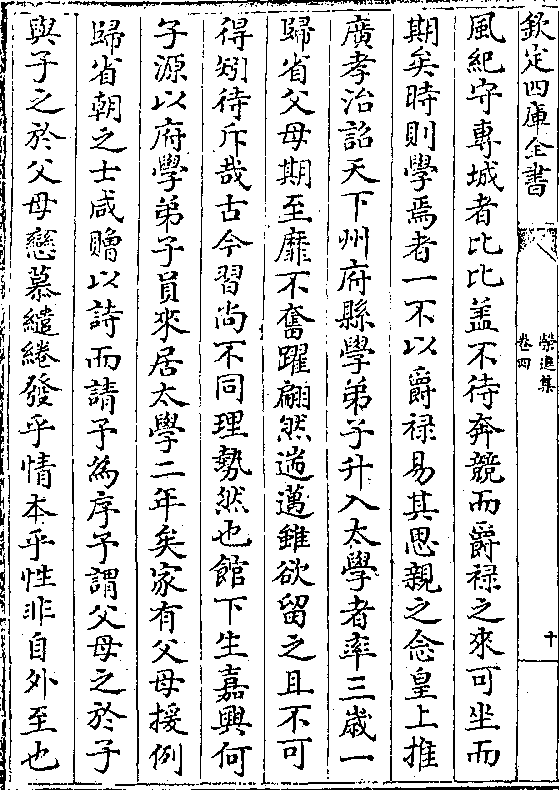 欽定四庫全書
榮進集
卷四
十
風紀守專城者比比盖不待奔競而爵禄之來可坐而
期矣時則學焉者一不以爵禄易其思親之念皇上推
廣孝治詔天下州府縣學弟子升入太學者率三歳一
歸省父母期至靡不奮躍翩然遄邁雖欲留之且不可
得矧待斥哉古今習尚不同理勢然也館下生嘉興何
子源以府學弟子員來居太學二年矣家有父母援例
歸省朝之士咸贈以詩而請予為序予謂父母之於子
與子之於父母戀慕繾綣發乎情本乎性非自外至也